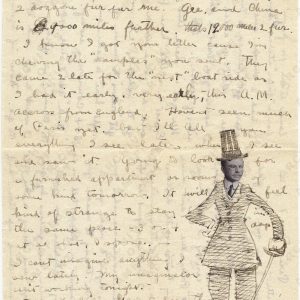 2 doggone fur fur me Gee, and China
is 9000 miles further thats 12,000 miles 2 fur.
I know I got your letter cause I'm
chewing the "samples" you sent. They
came 2 late for the boat ride as
I had it early, very early, this A.M.
across from England. Haven't seen much
of Paris yet, but I'll tell you
everything I see, later, when I
and saw it. Going to look for
a furnished appartment or room of
some kind tomorrow. It will feel
kind of strange to stay
the same place a day
at it is, I spose.
I cant imagine anything
lately. My imaginator
isnt working tonight.